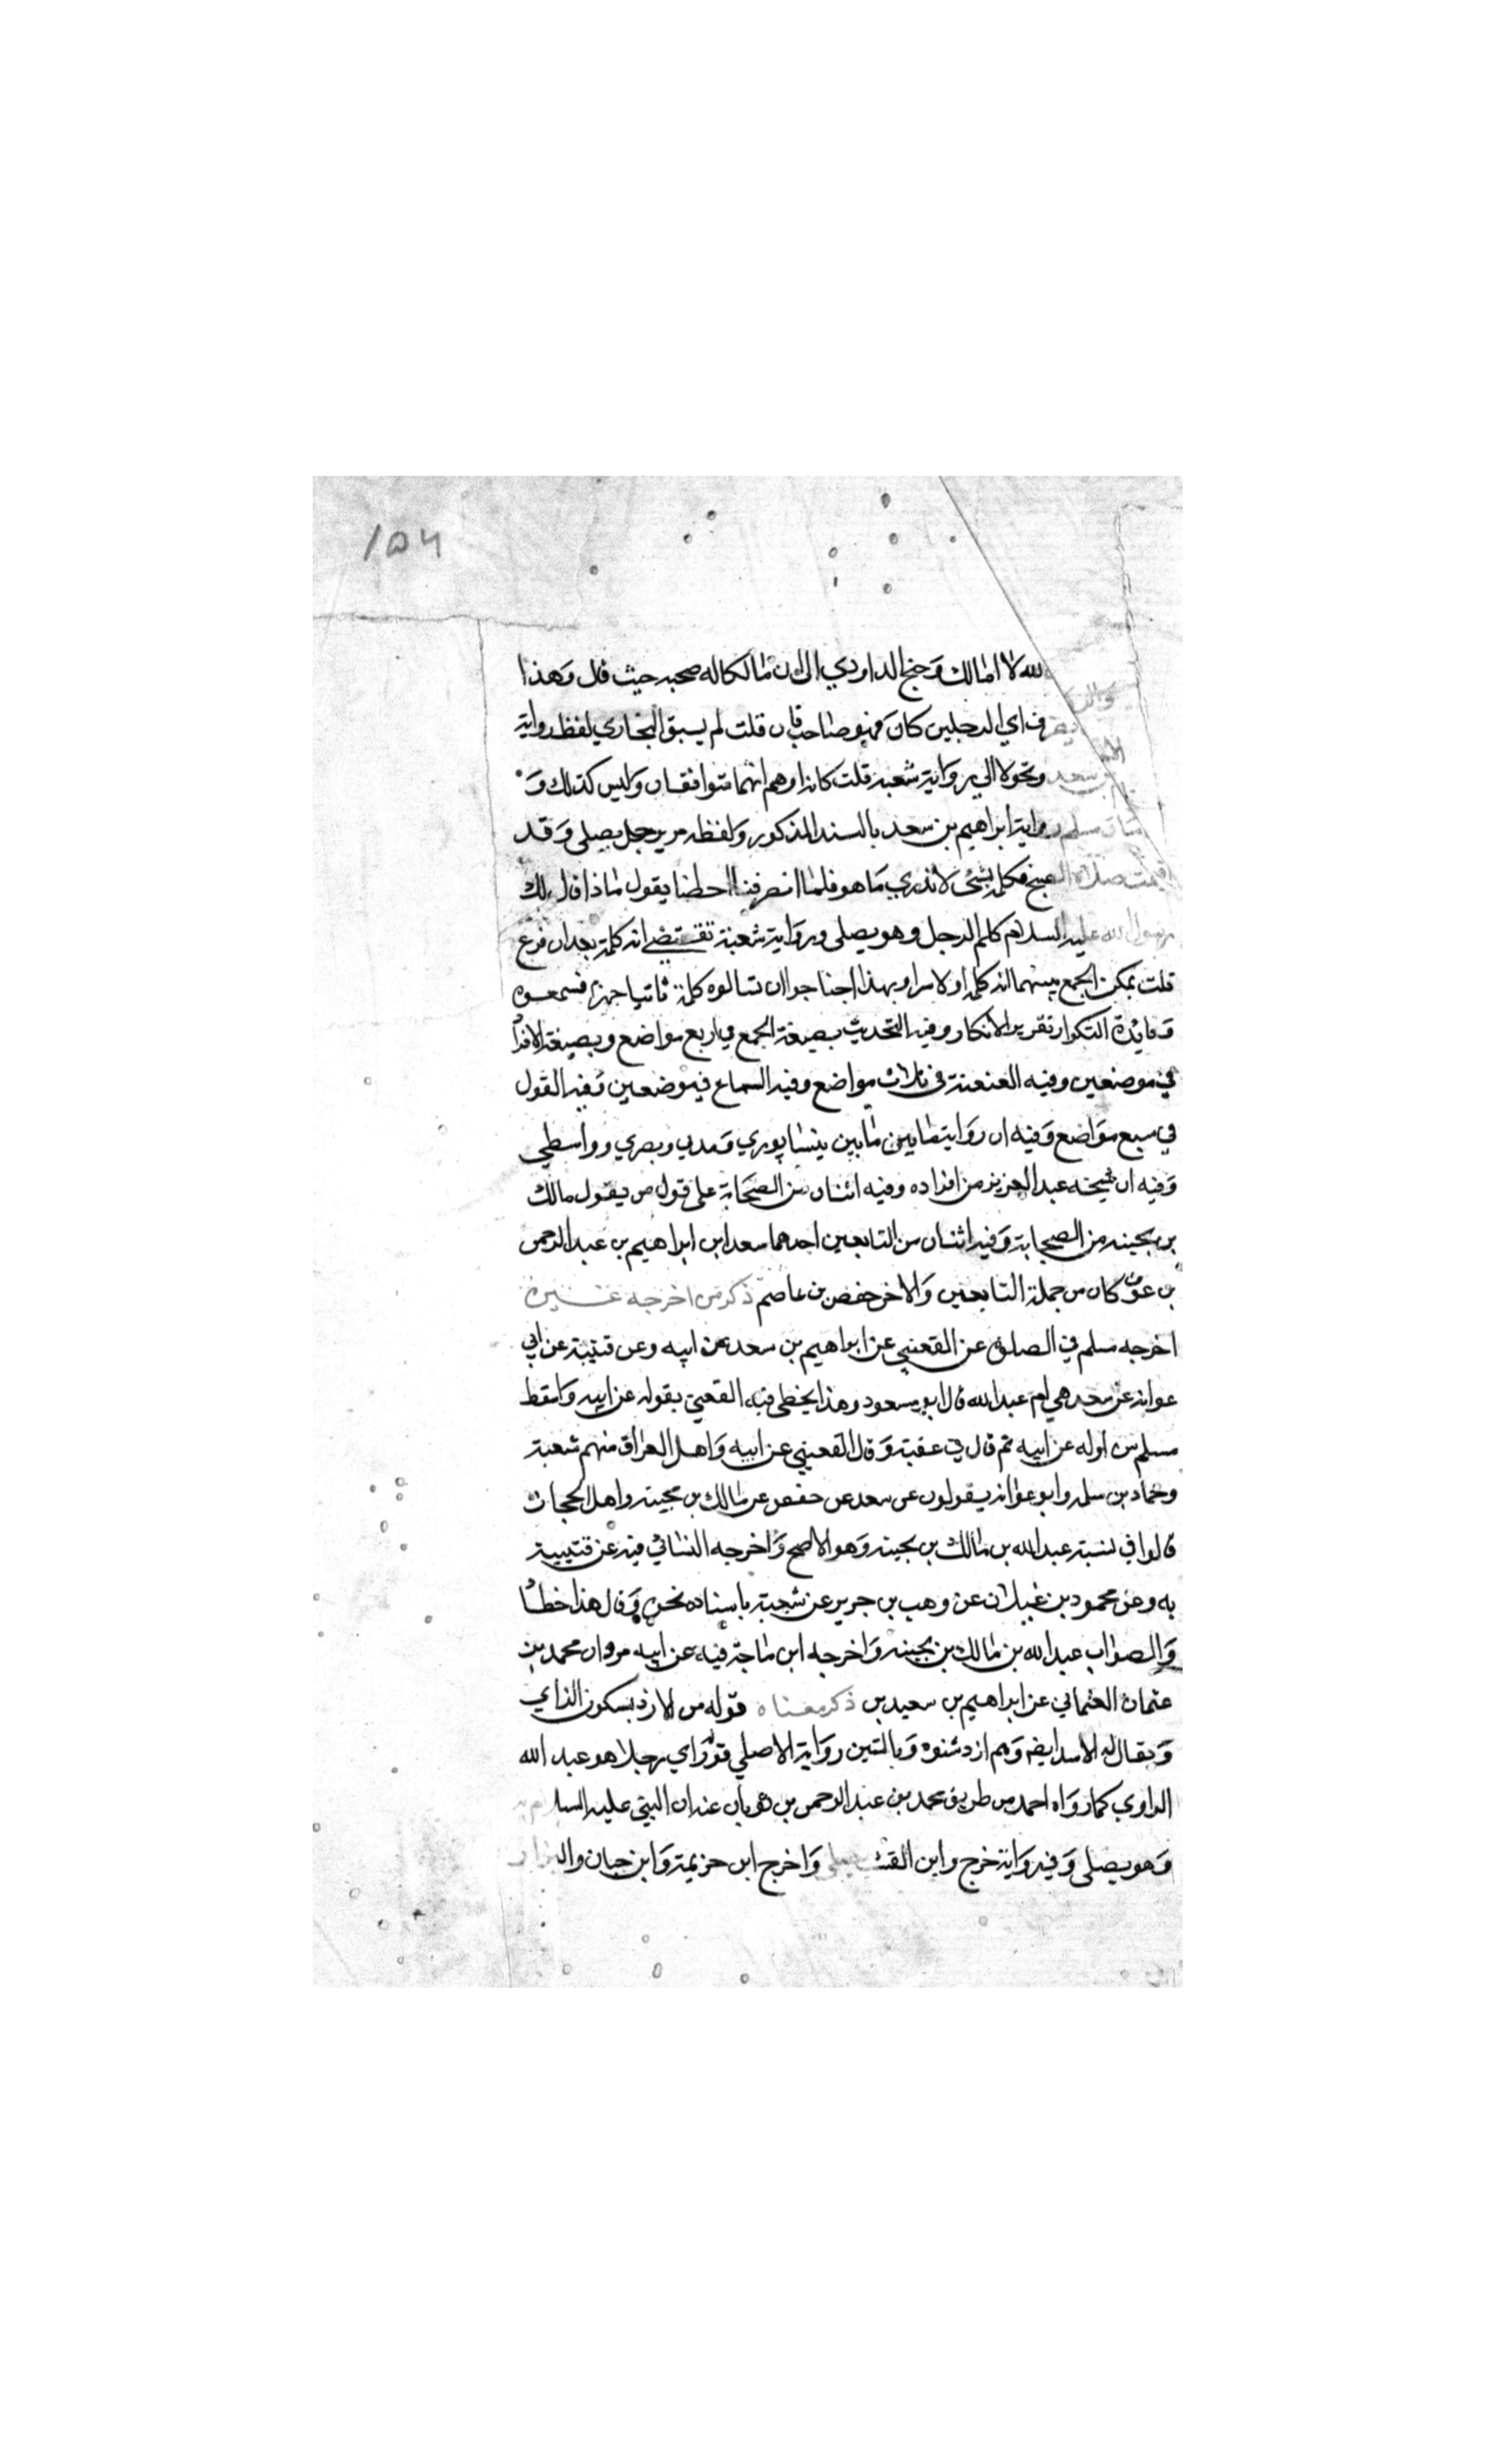 ١٥٣
لله لا امالك وحنح الداودي الى ان مالكا له صحبه حيث قال وهذا
اي الرجلين كان فهو صاحب فان قلت لم يسبق البخاري لفظ رواية
سعد وتحولا الي رواية شعبه قلت كانه اوهم انهما متوافقان وليس كذلك و
ساق مسلم رواية ابراهيم بن سعد بالسند المذكور ولفظه مر برجل يصلى وقد
اقيمت صلاة الصبح فكلمه بشئ لا ندري ما هو فلما انصرفنا احطنا يقول ماذا قال لك
رسول الله عليه السلام كلم الرجل وهو يصلى ورواية شعبة تقتضي انه كلمه بعد ان فرغ
قلت يمكن الجمع بينهما انه كلمه اولا سرا وبهذا احتاجوا ان سالوه كلمه ثانيا جهرا فسمعوه
وفايدة التكرار تقرير الانكار وفيه التحديث بصيغة الجمع في اربع مواضع وبصيغة الافراد
في موضعين وفيه العنعنة في ثلاث مواضع وفيه السماع في موضعين وفيه القول
في سبع مواضع وفيه ان روايته ما بين ما بين نيسابوري ومدني وبصري وواسطي
وفيه ان شيخه عبد العزيز من افراده وفيه اثنان من الصحابة على قول من يقول مالك
بن بحينه من الصحابة وفيه اثنان من التابعين احدهما سعد ابن ابراهيم بن عبد الرحمن
بن عوف كان من جملة التابعين والاخر حفص بن عاصم ذكر من اخرجه غيره
اخرجه مسلم في الصلوة عن القعنبي عن ابراهيم بن سعد عن ابيه وعن قتيبة عن ابي
عوانه عن سعد هي لم عبد الله قال ابو مسعود وهذا يخطى فيه القعنبي بقوله عن ابيه واسقط
مسلم من اوله عن ابيه ثم قال في عقبة وقال القعنبي عن ابيه واهل العراق منهم شعبة
وحماد بن سلمه وابو عوانه يقولون عن سعد عن حفص عن مالك بن بحينه واهل الحجاز
قالوا في نسبته عبد الله بن مالك بن بحينه وهو الاصح واخرجه النسائي فيه عن قتيبة
به وعن محمود بن غيلان عن وهب بن جرير عن شعبة باسناده نحوه وقال هذا خطأ
والصواب عبد الله بن مالك بن بحينه واخرجه ابن ماجة فيه عن ابيه مروان محمد بن
عثمان العثماني عن ابراهيم بن سعيد بن ذكر معناه قوله من الازد بسكون الزاي
ويقال له الاسد ايضه وهم ازد شنوه وبالتين رواية الاصلي قوله راي رجلا هو عبد الله
الراوي كما رواه احمد من طريق محمد بن عبد الرحمن بن ثوبان عنه ان النبي عليه السلام
وهو يصلى وفيه رواية خرج وابن القشب يصلى واخرج ابن خزيمة وابن حبان والبزار